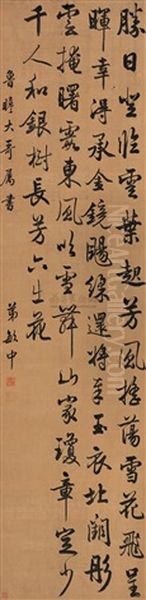 勝日登臨雲葉起芳風搖蕩雪花飛呈
暉幸得承金鏡颺綵還將奉玉衣北闕彤
雲掩曙霞東風吹雪舞山家瓊章定少
千人和銀樹長芳六出花
魯瞻大哥屬書
弟敏中